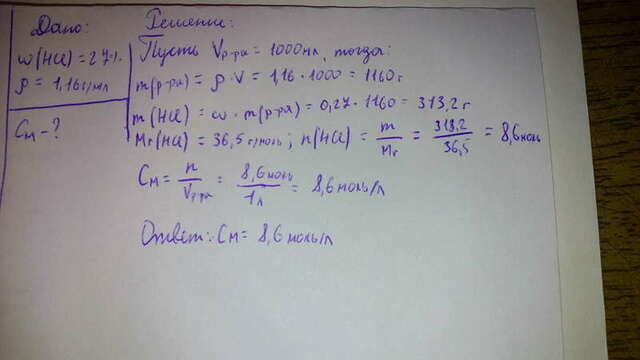 Дано:
w(HCl) = 27%
ρ = 1,16 г/мл
Cм - ?
Решение:
Пусть Vр-ра = 1000 мл, тогда:
m(р-ра) = ρ · V = 1,16 · 1000 = 1160 г
m(HCl) = w · m(р-ра) = 0,27 · 1160 = 313,2 г
Mr(HCl) = 36,5 г/моль; n(HCl) = m/Mr = 313,2/36,5 = 8,6 моль
Cм = n/Vр-ра = 8,6 моль/1 л = 8,6 моль/л
Ответ: Cм = 8,6 моль/л